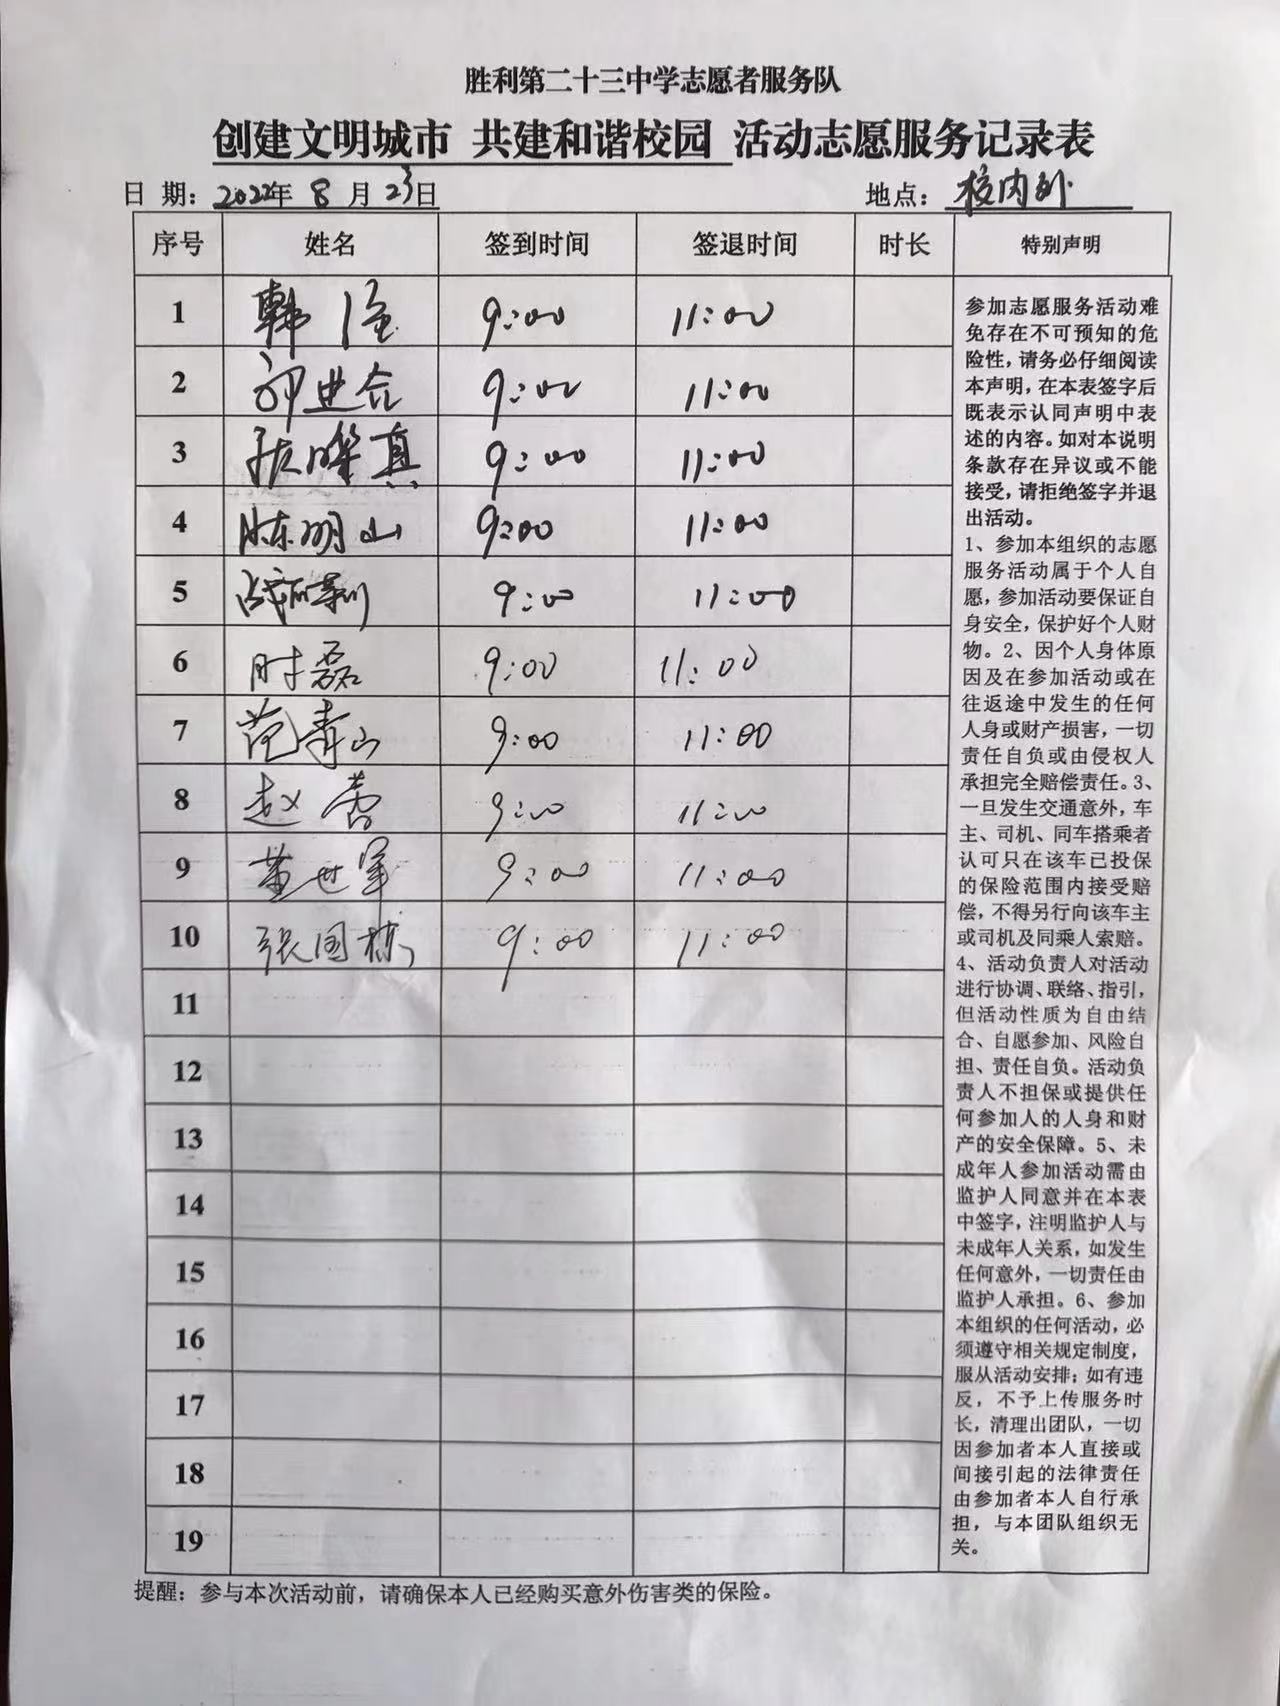 胜利第二十三中学志愿者服务队
创建文明城市 共建和谐校园 活动志愿服务记录表
日 期: 2022年 8 月 23日 地点: 校内外
序号 姓名 签到时间 签退时间 时长 特别声明
1 韩 9:00 11:00
2 业合 9:00 11:00
3 张 真 9:00 11:00
4 陈明山 9:00 11:00
5 9:00 11:00
6 时磊 9:00 11:00
7 范青山 9:00 11:00
8 赵 9:00 11:00
9 董世军 9:00 11:00
10 张国栋 9:00 11:00
11
12
13
14
15
16
17
18
19
参加志愿服务活动难
免存在不可预知的危
险性,请务必仔细阅读
本声明,在本表签字后
既表示认同声明中表
述的内容。如对本说明
条款存在异议或不能
接受,请拒绝签字并退
出活动。
1、参加本组织的志愿
服务活动属于个人自
愿,参加活动要保证自
身安全,保护好个人财
物。2、因个人身体原
因及在参加活动或在
往返途中发生的任何
人身或财产损害,一切
责任自负或由侵权人
承担完全赔偿责任。3、
一旦发生交通意外,车
主、司机、同车搭乘者
认可只在该车已投保
的保险范围内接受赔
偿,不得另行向该车主
或司机及同乘人索赔。
4、活动负责人对活动
进行协调、联络、指引,
但活动性质为自由结
合、自愿参加、风险自
担、责任自负。活动负
责人不担保或提供任
何参加人的人身和财
产的安全保障。5、未
成年人参加活动需由
监护人同意并在本表
中签字,注明监护人与
未成年人关系,如发生
任何意外,一切责任由
监护人承担。6、参加
本组织的任何活动,必
须遵守相关规定制度,
服从活动安排;如有违
反,不予上传服务时
长,清理出团队,一切
因参加者本人直接或
间接引起的法律责任
由参加者本人自行承
担,与本团队组织无
关。
提醒:参与本次活动前,请确保本人已经购买意外伤害类的保险。